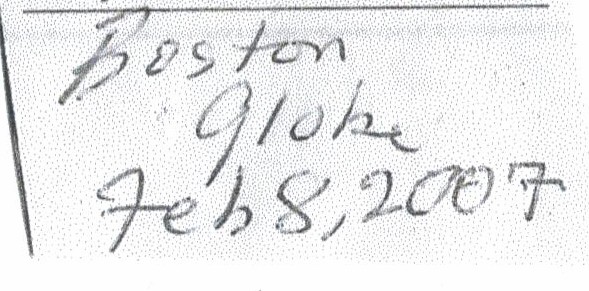 Boston
Globe
Feb 8, 2007